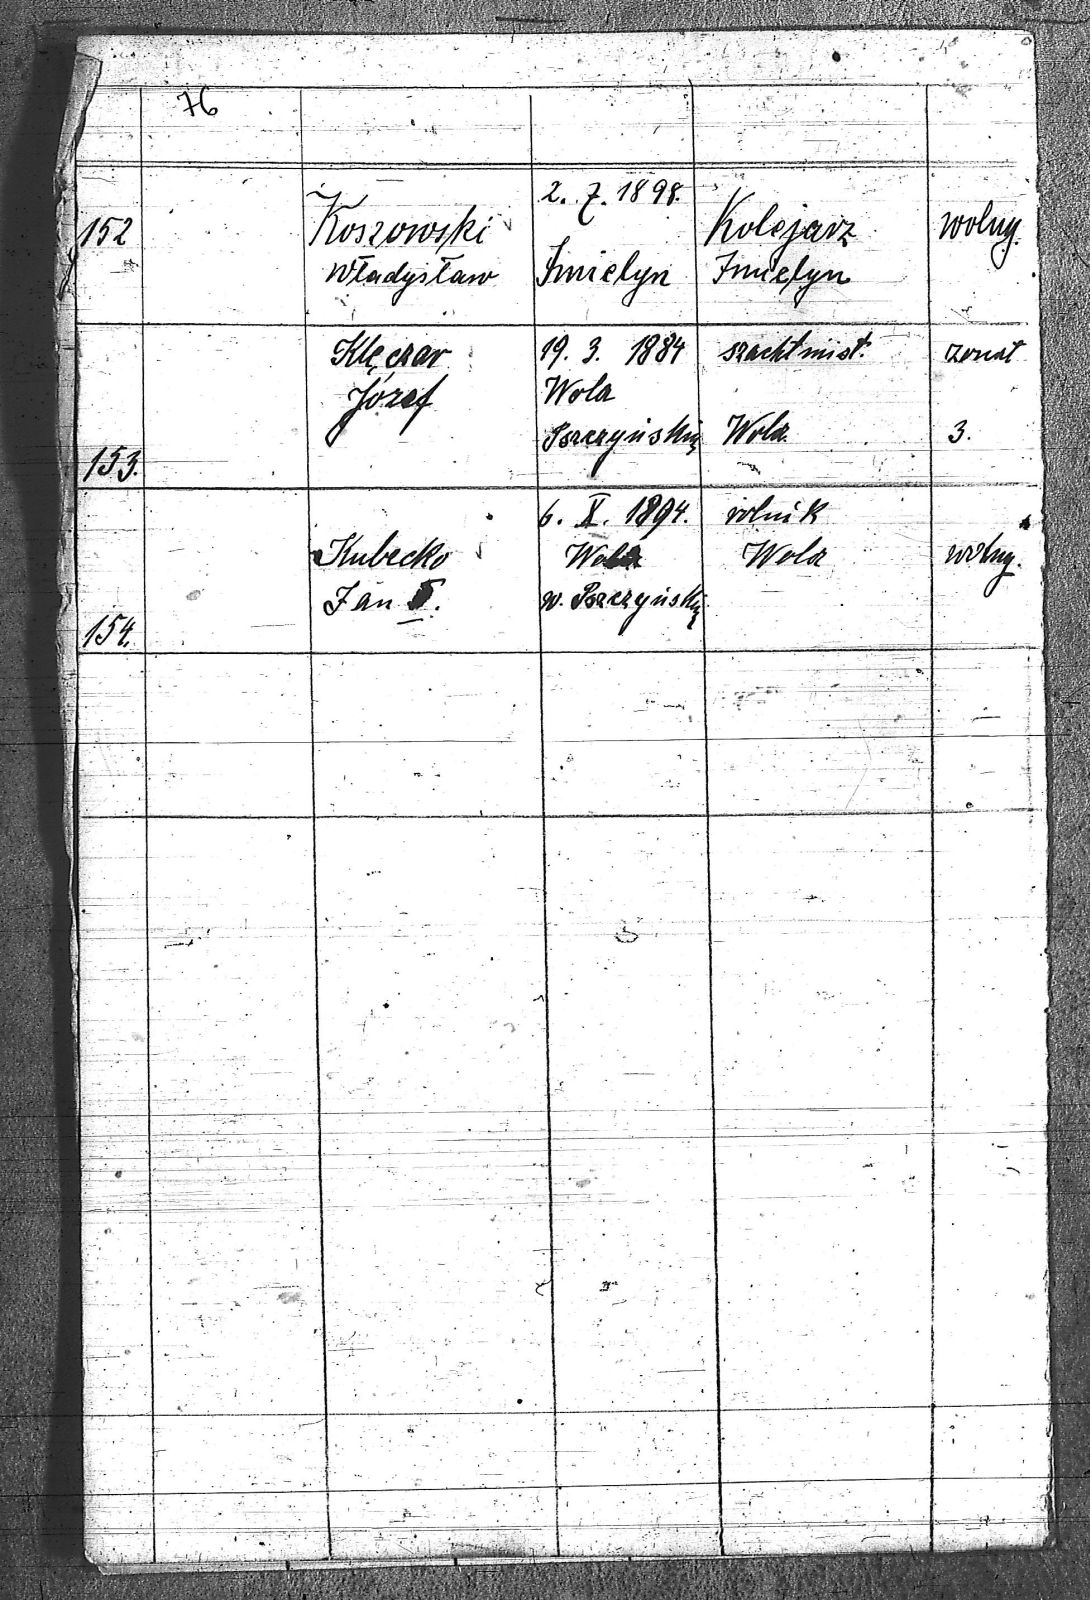 76
2. 7. 1898.
152 Koszowski Kolejarz wolny.
Władysław Imielyn Imielyn
Klęczar 19. 3. 1884 szachtmist. żonat
Józef Wola
Pszczyńskię Wola 3.
153.
6. X. 1894. rolnik
Kubecko Wola Wola wolny.
Jan II. w. Pszczyńskię
154.